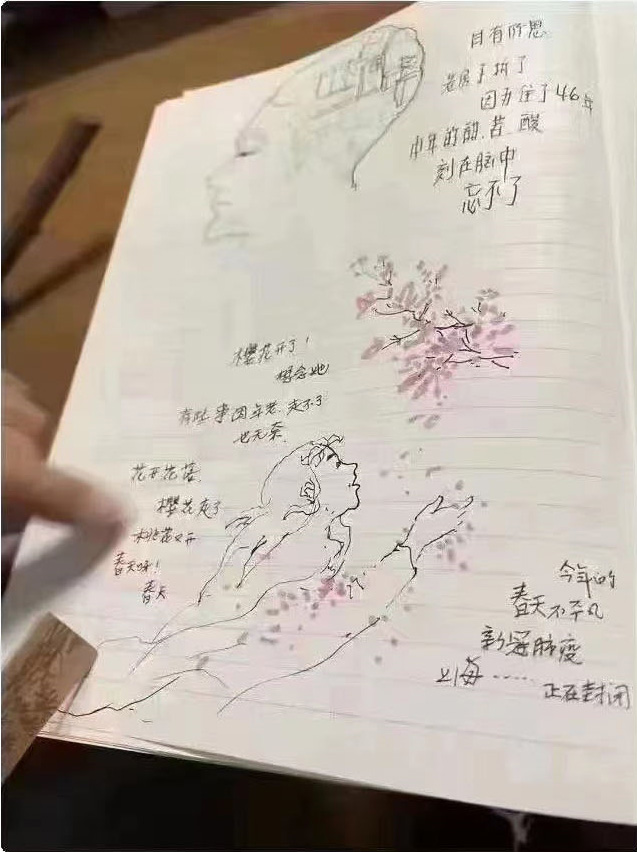 日有所思
老房子拆了
因为住了46年
中年的甜、苦、酸
刻在脑中
忘不了
樱花开了！
想念她
有些事因年老、走不了
也无奈
花开花落
樱花走了
桃花又开
春天呀！
春天
今年的
春天不平凡
新冠肺疫
上海……
正在封闭